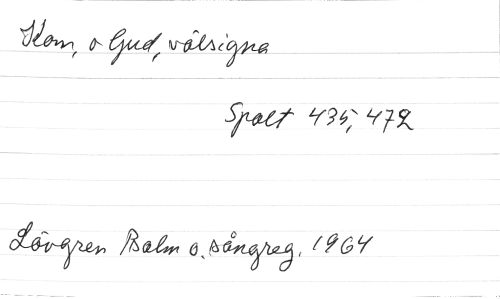 Kom, o Gud, välsigna
Spalt 435, 472
Lövgren Psalm o. sångreg. 1964